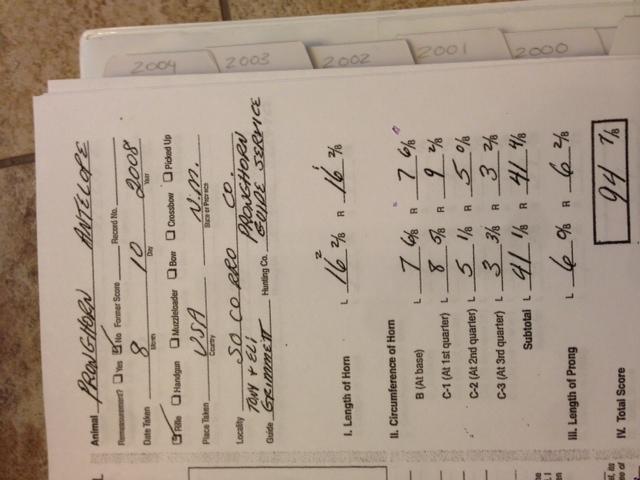 2004 2003 2002 2001 2000
Animal PRONGHORN ANTELOPE
Remeasurement? ☐ Yes ☑ No Former Score Record No.
Date Taken 8 10 2008
Month Day Year
☑ Rifle ☐ Handgun ☐ Muzzleloader ☐ Bow ☐ Crossbow ☐ Picked Up
Place Taken USA N.M.
Country State or Province
Locality SOCORRO CO.
TONY & ELI PRONGHORN
Guide GRIMMETT Hunting Co. GUIDE SERVICE
I. Length of Horn L 16 2/8 R 16 2/8
II. Circumference of Horn
B (At base) L 7 6/8 R 7 6/8
C-1 (At 1st quarter) L 8 5/8 R 9 2/8
C-2 (At 2nd quarter) L 5 1/8 R 5 0/8
C-3 (At 3rd quarter) L 3 3/8 R 3 2/8
Subtotal L 41 1/8 R 41 4/8
III. Length of Prong L 6 0/8 R 6 2/8
IV. Total Score 94 7/8